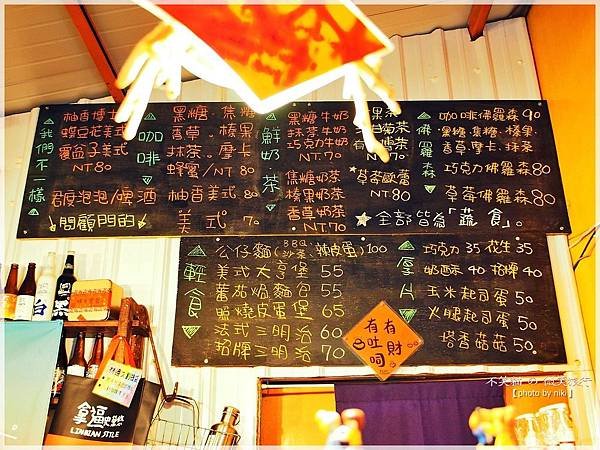 我們不一樣
柚香博士
蝶豆花美式
覆盆子美式
NT.80
咖啡
黑糖 焦糖
香草 榛果
抹茶 摩卡
蜂蜜/NT.80
柚香美式 80
美式 70
鮮奶茶
黑糖牛奶
抹茶牛奶
巧克力牛奶
NT.70
焦糖奶茶
榛果奶茶
香草奶茶
NT.70
果茶
NT.70
草莓歐蕾
NT.80
全部皆為「蔬食」。
佛羅森
咖啡佛羅森 90
黑糖.焦糖.榛果
香草.摩卡.抹茶
巧克力佛羅森 80
草莓佛羅森 80
輕食
公仔麵(BBQ 沙茶、辣皮蛋)100
美式大亨堡 55
蕃茄焗麵包 55
照燒皮蛋堡 65
法式三明治 60
招牌三明治 70
厚片
巧克力 35 花生 35
奶酥 40 招牌 40
玉米起司蛋 50
火腿起司蛋 50
塔香菇菇 50
有有
吐財
呵
LINHIAN STYLE
[ photo by niki ]